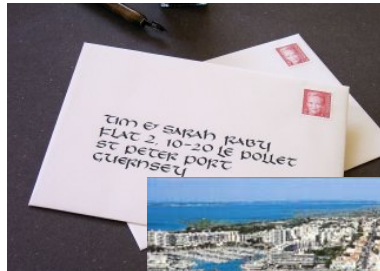 Tim & Sarah Raby
Flat 2, 10-20 Le Pollet
St Peter Port
Guernsey